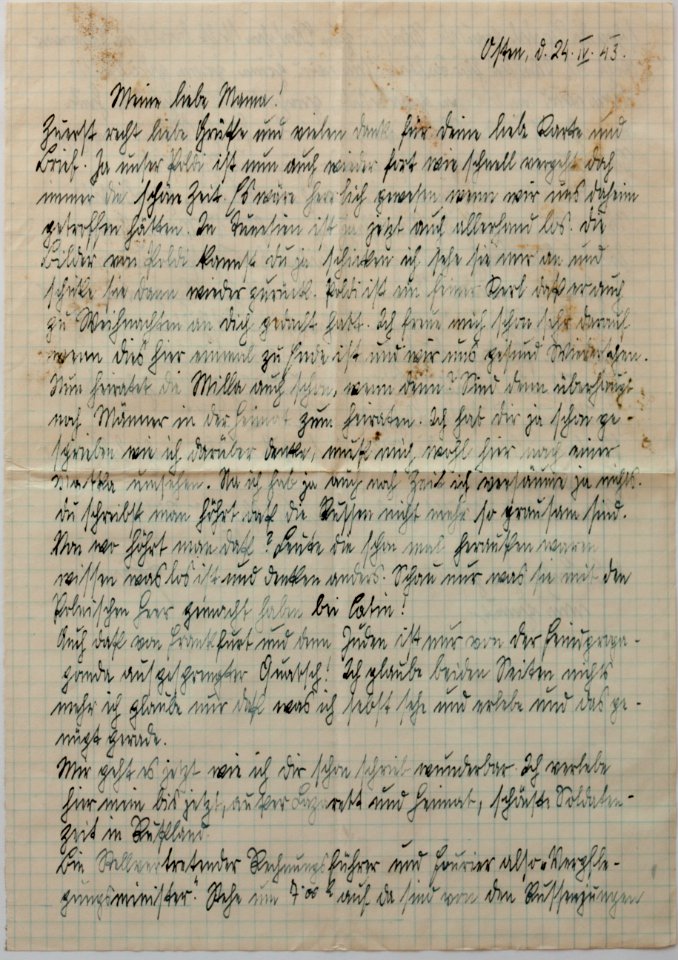 Osten, d. 24. IV. 43.
Meine liebe Mama!
Zuerst recht liebe Grüße und vielen dank für deine liebe Karte und
Brief. Ja unser Poldi ist nun auch wieder fort wie schnell vergeht doch
immer die schöne Zeit. Es wäre herrlich gewesen wenn wir uns daheim
getroffen hätten. In Tunesien ist ja jetzt auch allerhand los. die
Bilder von Poldi kannst du ja schicken ich sehe sie mir an und
schicke sie dann wieder zurück. Poldi ist ein feiner Kerl daß er auch
zu Weihnachten an dich gedacht hatt. Ich freue mich schon sehr darauf
wenn dies hier einmal zu Ende ist und wir uns gesund Wiedersehen.
Nun heiratet die Milla auch schon, wenn denn? Sind denn überhaupt
noch Männer in der Heimat zum heiraten. Ich hab dir ja schon ge-
schrieben wie ich darüber denke, muß mich wohl hier nach einer
umsehen. Na ich hab ja auch noch Zeit ich versäume ja nichts.
du schreibst man höhrt daß die Russen nicht mehr so grausam sind.
Von wo höhrt man daß? Leute die schon mal heraußen waren
wissen was los ist und denken anders. Schau nur was sie mit den
Polnischen Heer gemacht haben bei Catin!
Auch daß von Frankfurt und denn Juden ist nur von der Feindpropa-
ganda ausgesprengter Quatsch! Ich glaube beiden Seiten nichts
mehr ich glaube nur daß was ich selbst sehe und erlebe und das ge-
nügt gerade.
Mir geht es jetzt wie ich dir schon schrieb wunderbar. Ich verlebe
hier mein bis jetzt, außer Lazarett und Heimat, schönste Soldaten-
zeit in Rußland.
Bin Stellvertretender Rechnungsführer und Fourier also "Verpfle-
gungsminister". Stehe um 7°° h auf da sind von den Russenjungen